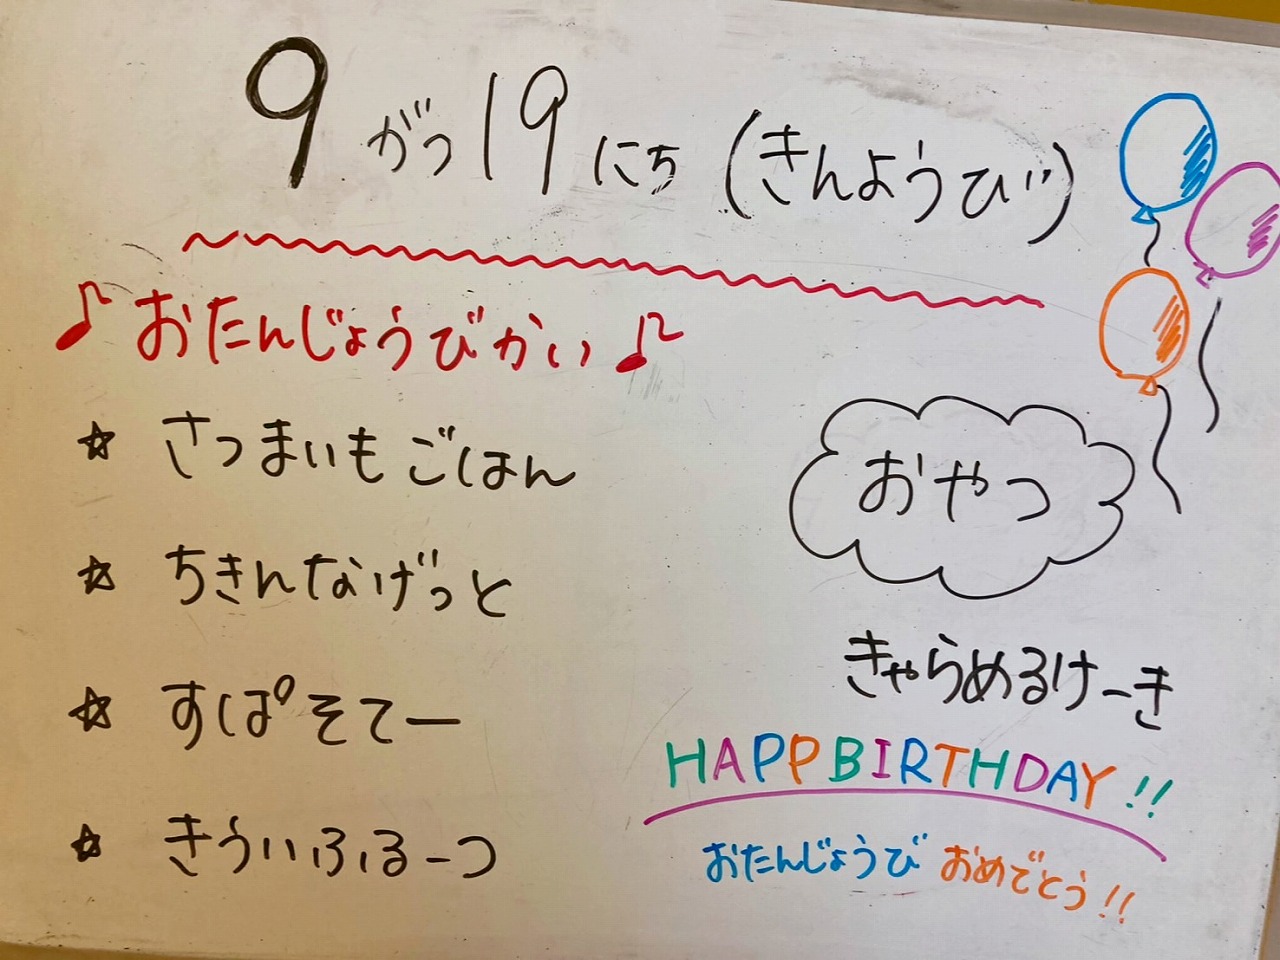 9がつ19にち(きんようび)
♪おたんじょうびかい♪
☆ さつまいもごはん
☆ ちきんなげっと
☆ すぱそてー
☆ きういふるーつ
おやつ
きゃらめるけーき
HAPPBIRTHDAY!!
おたんじょうび おめでとう!!